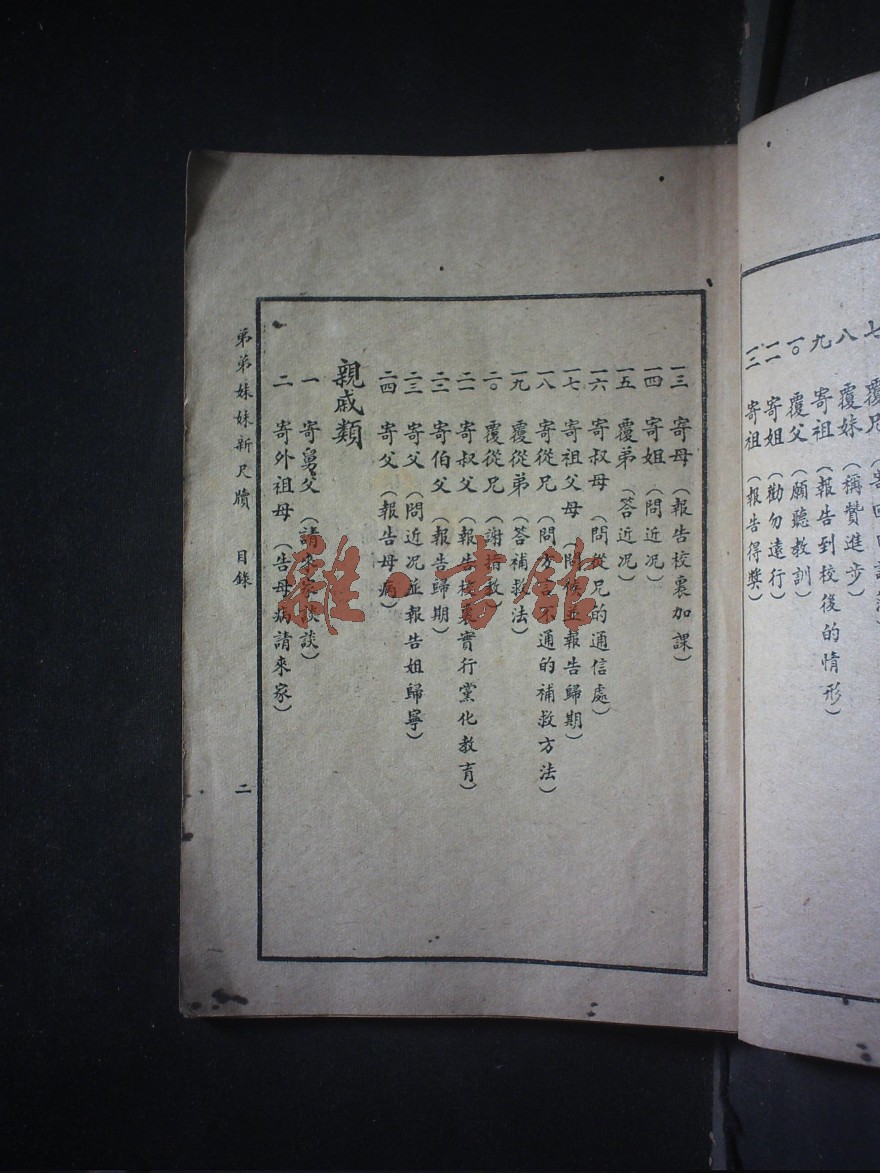 七 覆兄
八 覆妹（稱贊進步）
九 寄祖（報告到校後的情形）
一〇 覆父（願聽教訓）
一一 寄姐（勸勿遠行）
一二 寄祖（報告得獎）
一三 寄母（報告校裏加課）
一四 寄姐（問近况）
一五 覆弟（答近况）
一六 寄叔母（問從兄的通信處）
一七 寄祖父母（問候並報告歸期）
一八 寄從兄（問方言不通的補救方法）
一九 覆從弟（答補救法）
二〇 覆從兄（謝指教）
二一 寄叔父（報告校裏實行黨化教育）
二二 寄伯父（報告歸期）
二三 寄父（問近况並報告姐歸寧）
二四 寄父（報告母病）
親戚類
一 寄舅父（請來談談）
二 寄外祖母（告母病請來家）
弟弟妹妹新尺牘 目錄 二
雜·書館